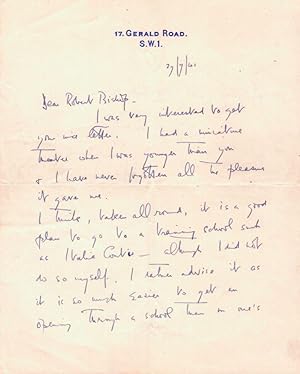 17, GERALD ROAD.
S.W.1.
29/7/41
Dear Robert Bishop –
I was very interested to get
your nice letter. I had a miniature
theatre when I was younger than you
& I have never forgotten all the pleasure
it gave me.
I think, taken all round, it is a good
plan to go to a training school such
as Italia Conti – although I did not
do so myself. I rather advise it as
it is so much easier to get an
opening through a school than on one's